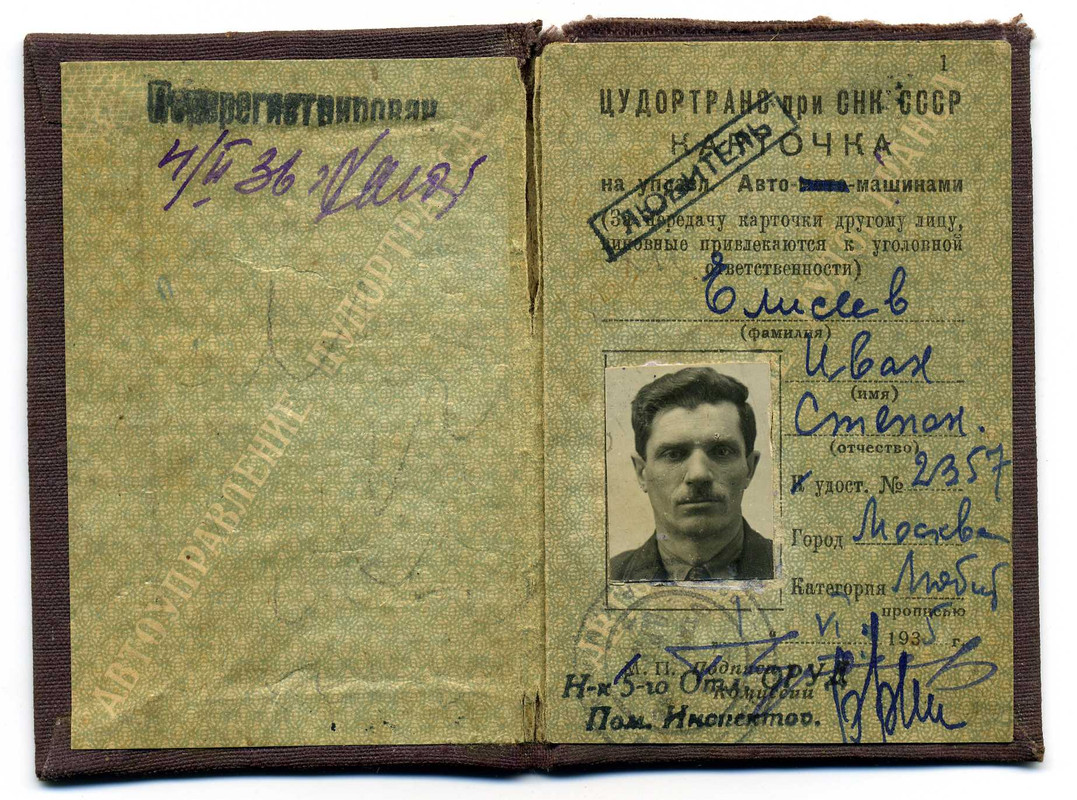 Перерегистрирован
4/III 36
АВТОУПРАВЛЕНИЕ ЦУДОРТРАНСА
1
ЦУДОРТРАНС при СНК СССР
КАРТОЧКА
ЛЮБИТЕЛЬ
на управл. Авто-мото-машинами
(За передачу карточки другому лицу,
виновные привлекаются к уголовной
ответственности)
Елисеев
(фамилия)
Иван
(имя)
Степан.
(отчество)
К удост. № 2357
Город Москва
Категория Любит
прописью
1 VI 1935 г.
М. П. Подписи
комиссии
Н-к 5-го Отд. ОРУД
Пом. Инспектор.